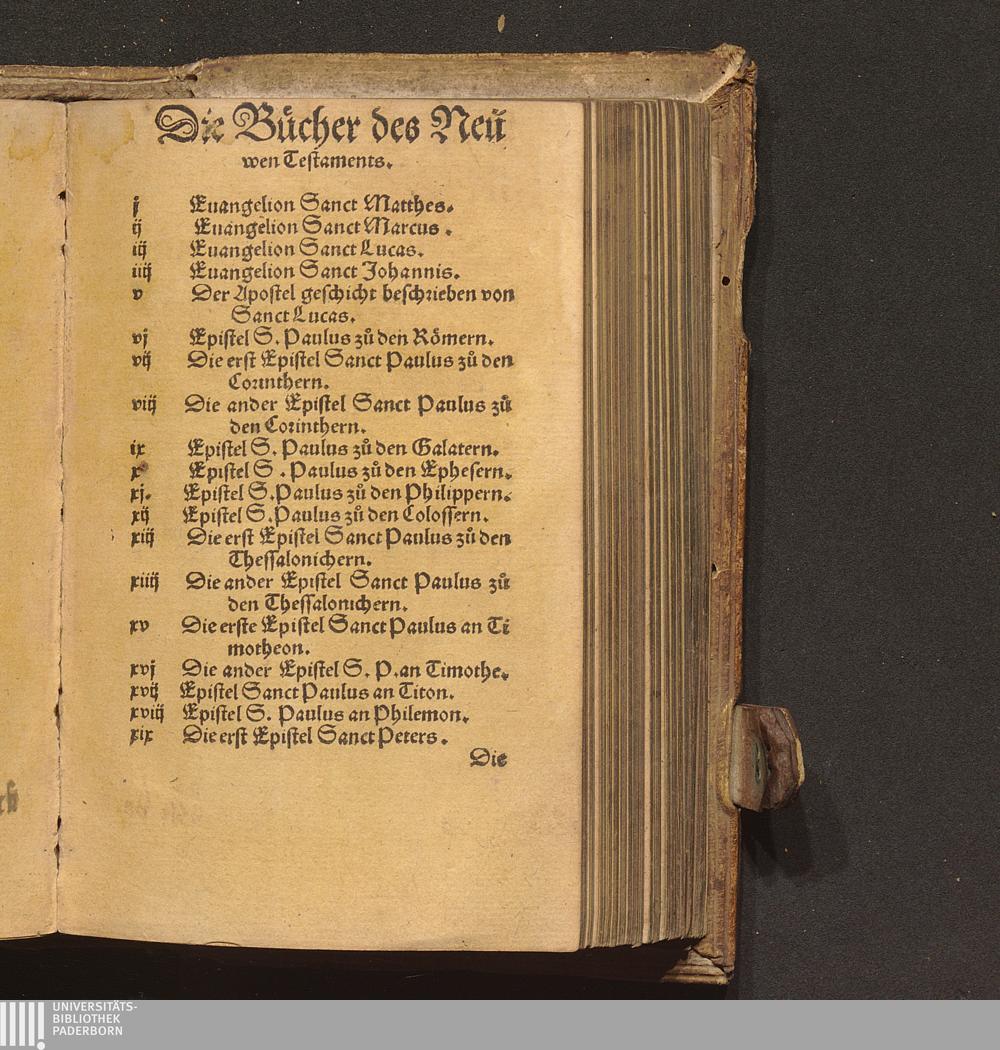 Die Bücher des Neü
wen Testaments.
j Euangelion Sanct Matthes.
ij Euangelion Sanct Marcus.
iij Euangelion Sanct Lucas.
iiij Euangelion Sanct Johannis.
v Der Apostel geschicht beschrieben von
Sanct Lucas.
vj Epistel S. Paulus zů den Römern.
vij Die erst Epistel Sanct Paulus zů den
Corinthern.
viij Die ander Epistel Sanct Paulus zů
den Corinthern.
ix Epistel S. Paulus zů den Galatern.
x Epistel S. Paulus zů den Ephesern.
xj. Epistel S. Paulus zů den Philippern.
xij Epistel S. Paulus zů den Colossern.
xiij Die erst Epistel Sanct Paulus zů den
Thessalonichern.
xiiij Die ander Epistel Sanct Paulus zů
den Thessalonichern.
xv Die erste Epistel Sanct Paulus an Ti
motheon.
xvj Die ander Epistel S. P. an Timothe.
xvij Epistel Sanct Paulus an Titon.
xviij Epistel S. Paulus an Philemon.
xix Die erst Epistel Sanct Peters.
Die
UNIVERSITÄTS-
BIBLIOTHEK
PADERBORN